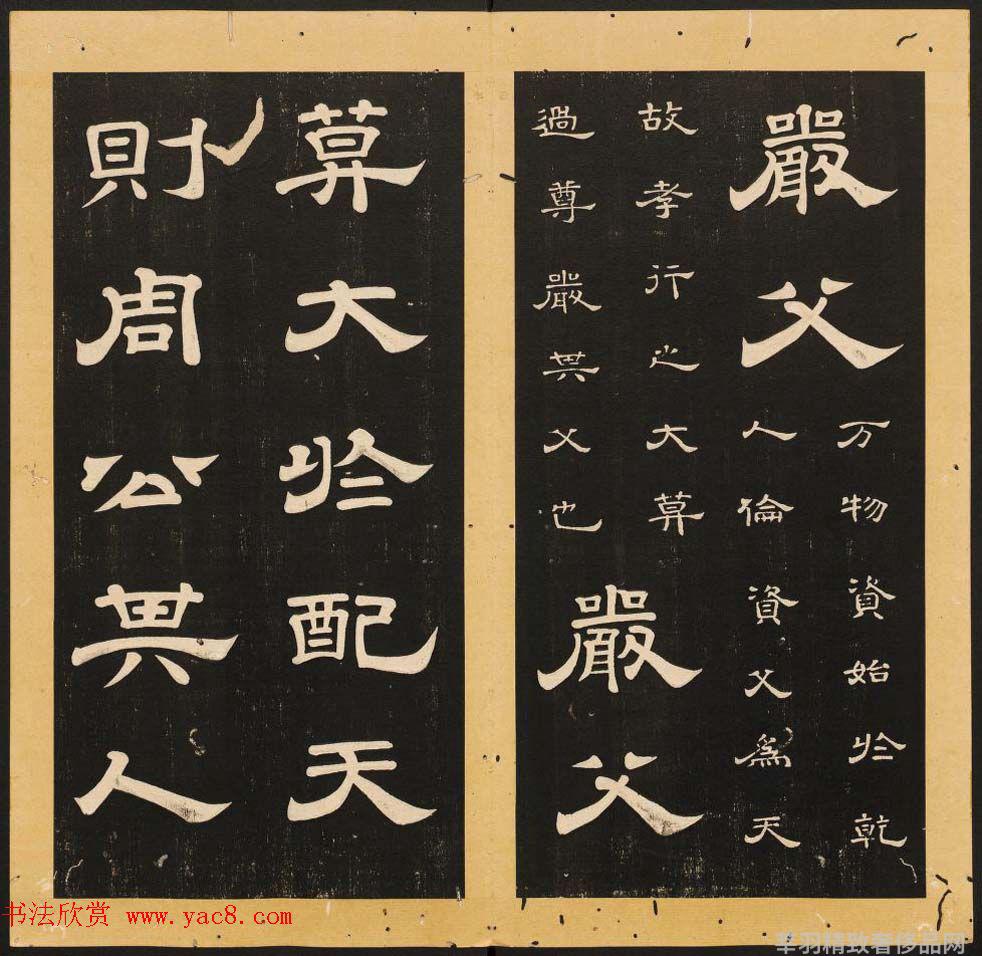 嚴父
万物資始於乾
人倫資父為天
故孝行之大莫
過尊嚴其父也
嚴父
莫大於配天
則周公其人
书法欣赏 www.yac8.com
芊羽精致奢侈品网